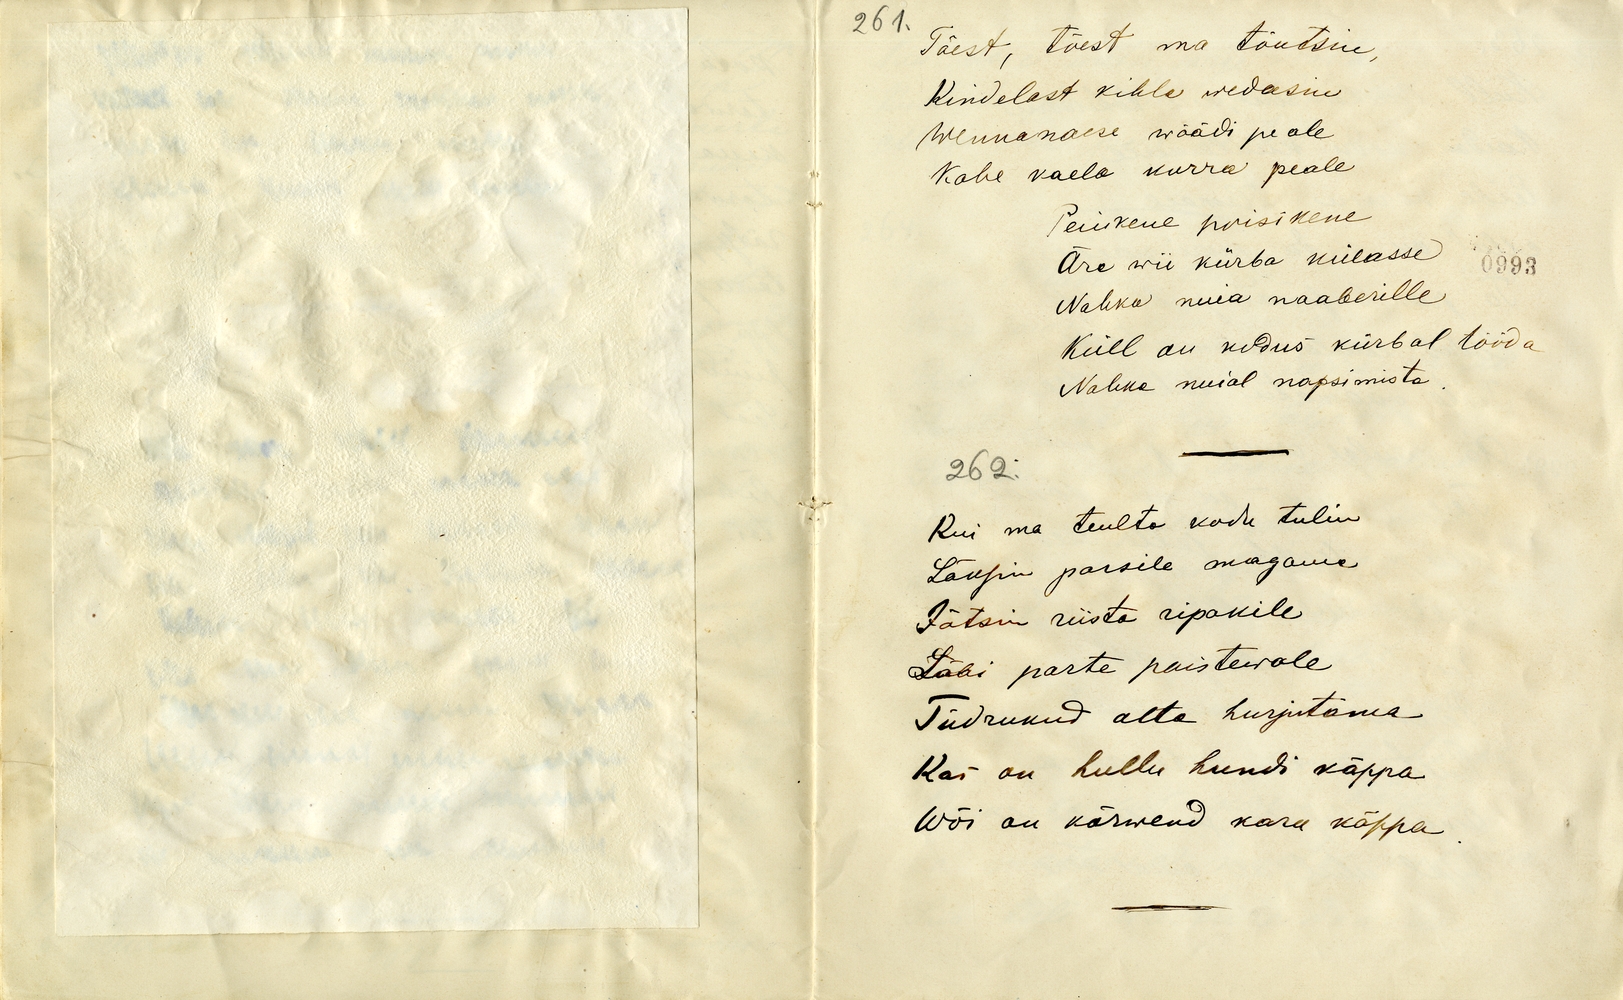 261.
Tõest, tõest ma tõutsin,
Kindelast kihla wedasin
Wennanaese wöödi peale
Kahe kaela kurra peale
Peiukene poisikene
Ära wii kürba külasse
Nahka nuia naaberille
Küll on kodus kürbal tööda
Nahka nuial napsimista.
0993
262.
Kui ma teulta kodu tulin
Läksin parsile magama
Jätsin riista ripakile
Läbi parte paistewale
Tüdrukud alta hurjutama
Kas on hullu hundi käppa
Wõi on kõrwend karu käppa.